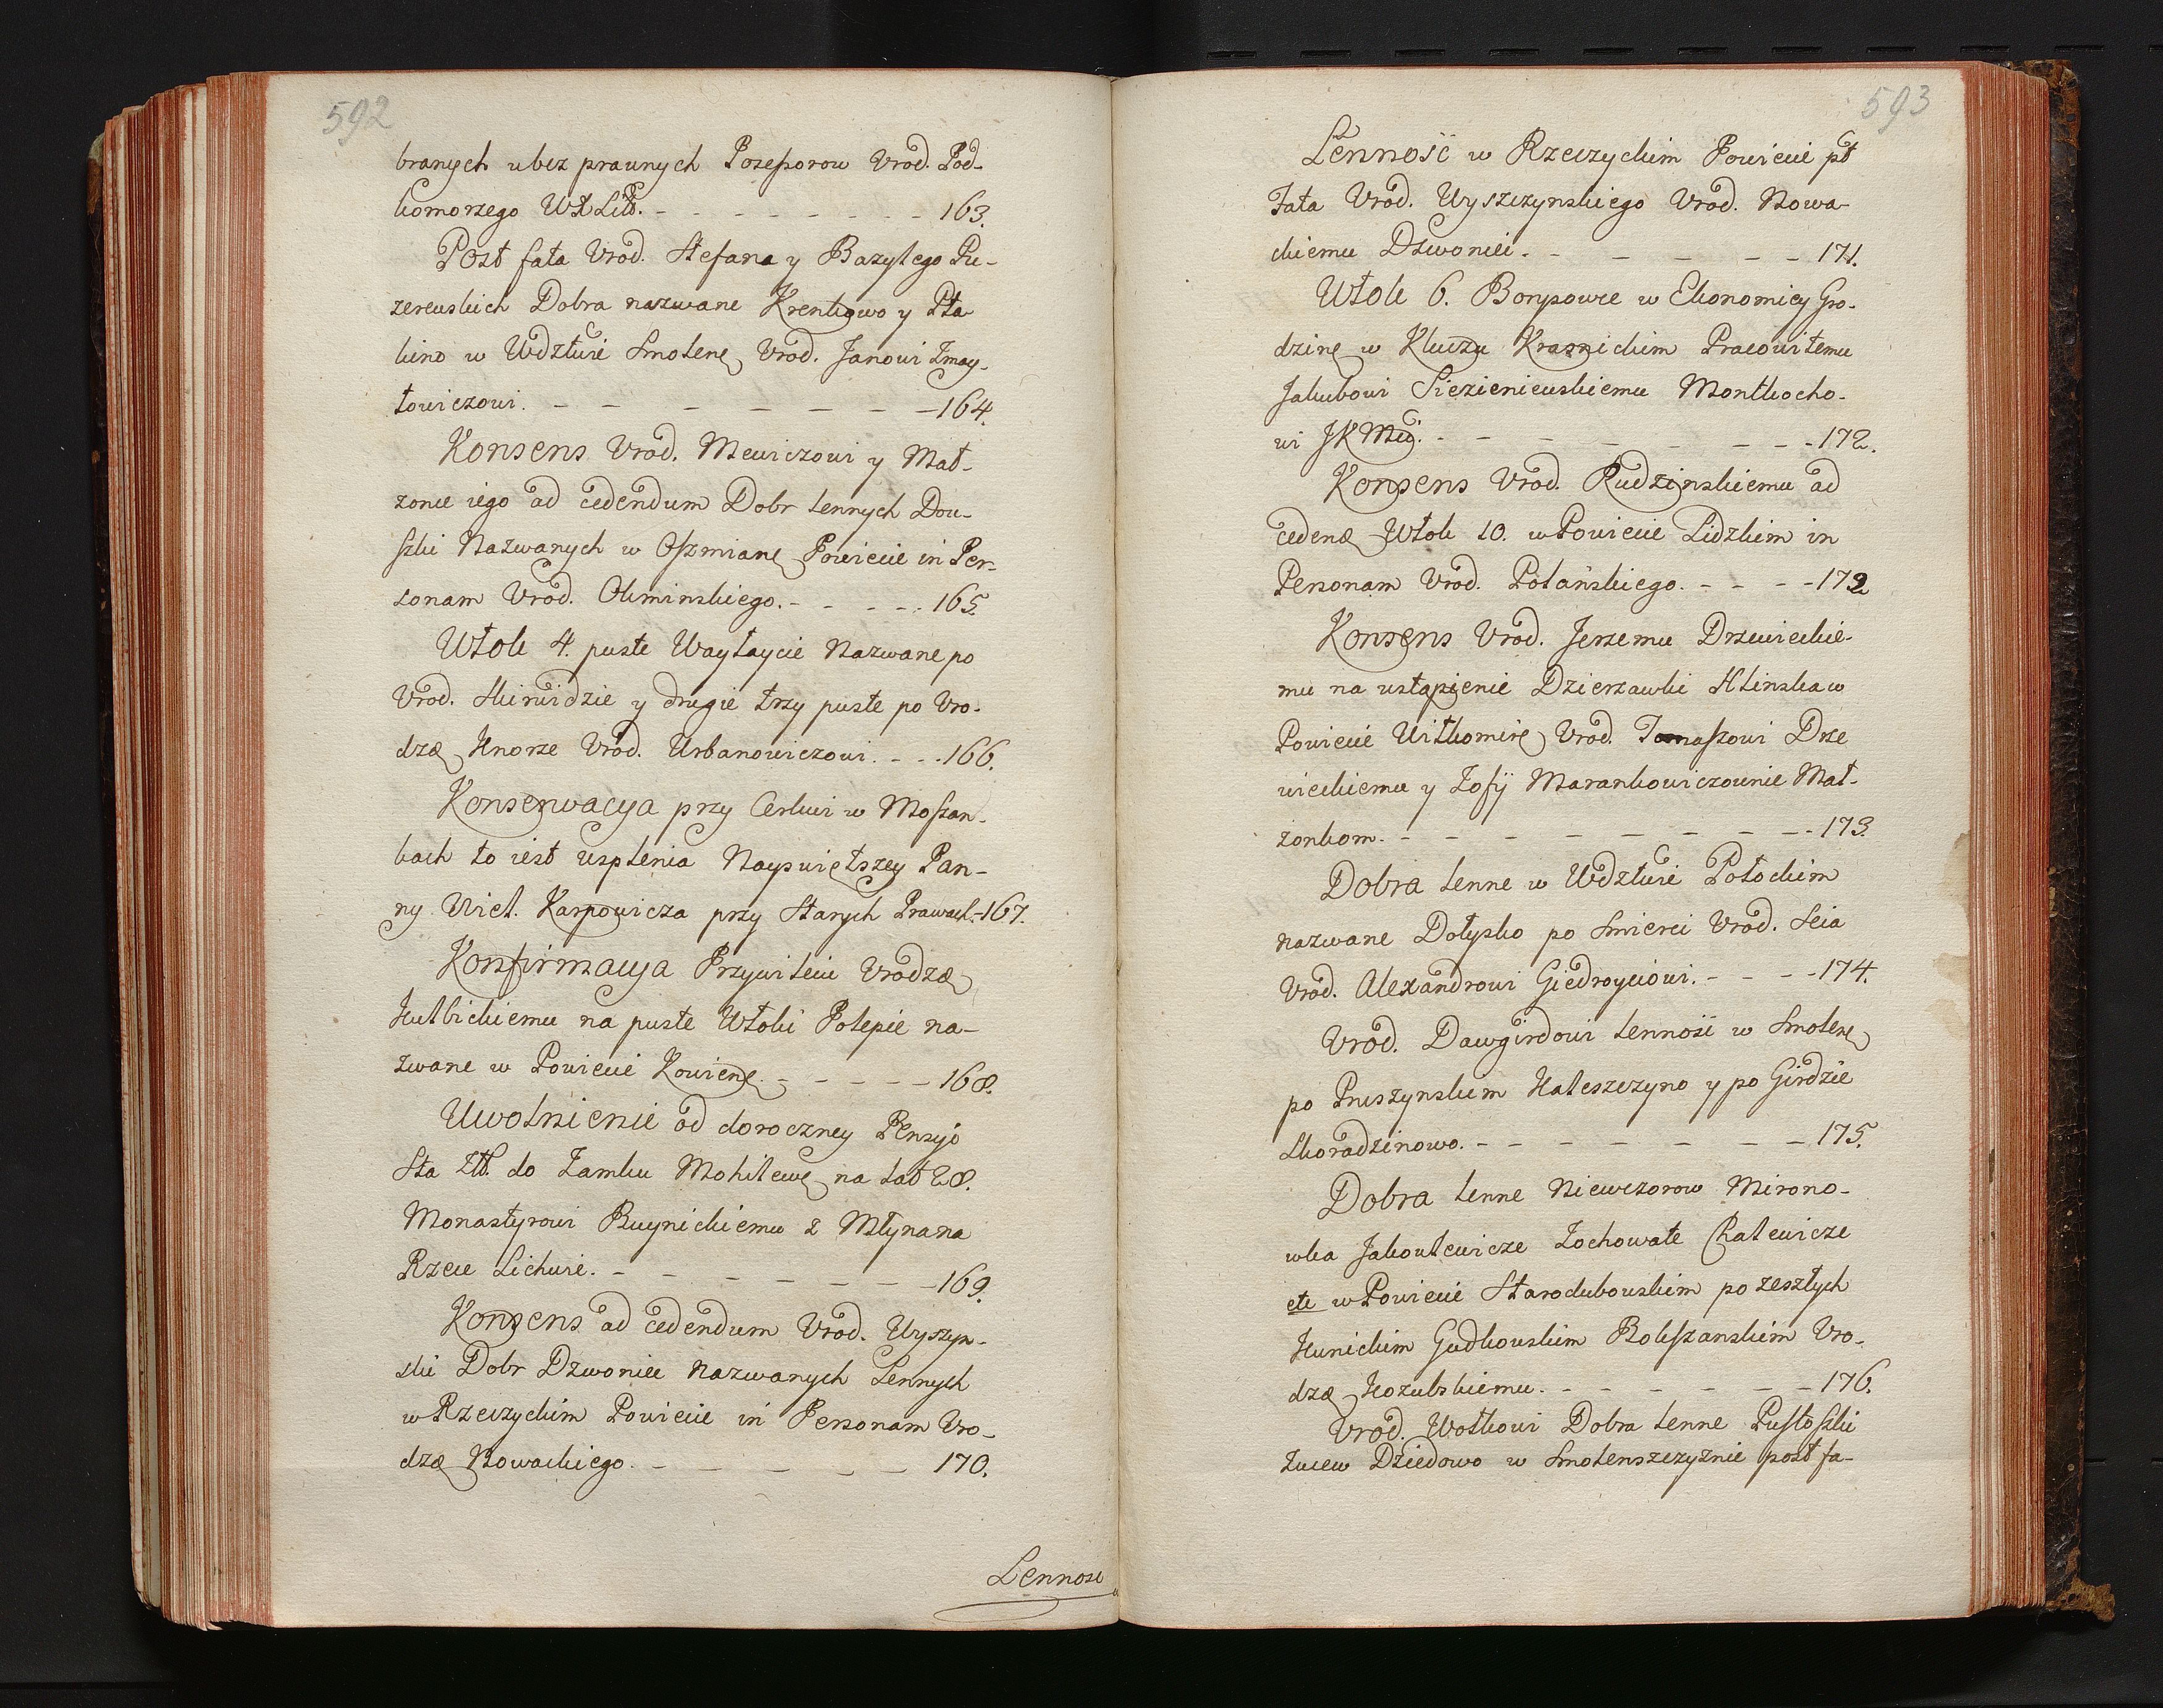 592
branych ubez prawnych Possessorow Urod. Pod-
komorzego WXLitt. - - - - - - - - 163.
Post fata Urod. Stefana y Bazylego Pu-
zerewskich Dobra nazwane Krenkowo y Pta
kino w Wdztwie Smolenę Urod. Janowi Zmay-
łowiczowi. - - - - - - - 164.
Konsens Urod. Mewiczowi y Mał-
zonce iego ad cedendum Dobr lennych Dou-
szki Nazwanych w Oszmianę Powiecie in Per-
sonam Urod. Oluminskiego. - - - - - 165.
Włok 4. puste Waytaycie Nazwane po
Urod. Skirwidzie y drugie trzy puste po Uro-
dzę Knorze Urod. Urbanowiczowi. - - - 166.
Konserwacya przy Cerkwi w Moszan-
kach to iest Uspienia Nayswiętszey Pan-
ny Wiel. Karpowicza przy Starych Prawach. - 167.
Konfirmacya Przywileiu Urodzę
Kulbickiemu na puste Włoki Polepie na-
zwane w Powiecie Kowienę. - - - - - 168.
Uwolnienie od doroczney Pensyi
Sta Złł. do Zamku Mohilewę na lat 28.
Monastyrowi Buynickiemu z Młyna na
Rzece Lichwie. - - - - - - - 169.
Konsens ad cedendum Urod. Wyszyn-
ski Dobr Dzwoniec nazwanych Lennych
w Rzeczyckim Powiecie in Personam Uro-
dzę Nowackiego. - - - - - - 170.
Lennosc
593
Lenność w Rzeczyckim Powiecie pt
Fata Urod. Wyszczynskiego Urod. Nowa-
ckiemu Dzwoniec. - - - - - - 171.
Włok 6. Borysowce w Ekonomiey Gro-
dzinę w Kluczu Krasnickim Pracowitemu
Jakubowi Siezieniewskiemu Montkocho-
wi JKMci. - - - - - - - - 172.
Konsens Urod. Rudzinskiemu ad
cedenę Włok 10. w Powiecie Lidzkim in
Personam Urod. Polańskiego. - - - - 172
Konsens Urod. Jerzemu Drzewieckie-
mu na ustąpienie Dzierzawki Klinska w
Powiecie Wiłkomirę Urod. Tomaszowi Drze
wieckiemu y Zofij Marankowiczownie Mał-
zonkom. - - - - - - - - 173.
Dobra lenne w Wdztwie Połockim
nazwane Dołysko po Smierci Urod. Scia
Urod. Alexandrowi Giedroyciowi. - - - - 174.
Urod. Dawgirdowi lenność w Smolenę
po Pruszynskim Haleszczyno y po Girdzie
Skoradzinowo. - - - - - - - 175.
Dobra lenne Niewzorow Mirono-
wka Jakoulewicze Zochowałe Chalewicze
etc w Powiecie Starodubowskim po zeszłych
Kunickim Gudkowskim Bolkszanskim Uro-
dzę Kozubskiemu. - - - - - - 176.
Urod. Wołkowi Dobra lenne Pustoszki
Zuiew Dziedowo w Smolenszczyznie post fa-